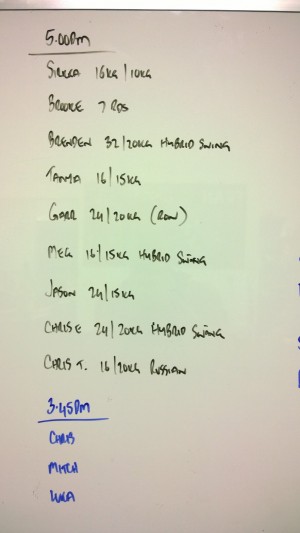 5.00PM
SIRKKA 16KG/10KG
BROOKE 7 RDS
BRENDEN 32/20KG HYBRID SWING
TANYA 16/15KG
GARR 24/20KG (ROW)
MEG 16/15KG HYBRID SWING
JASON 24/15KG
CHRIS E 24/20KG HYBRID SWING
CHRIS T. 16/20KG RUSSIAN
3.45PM
CHRIS
MITCH
LUKA